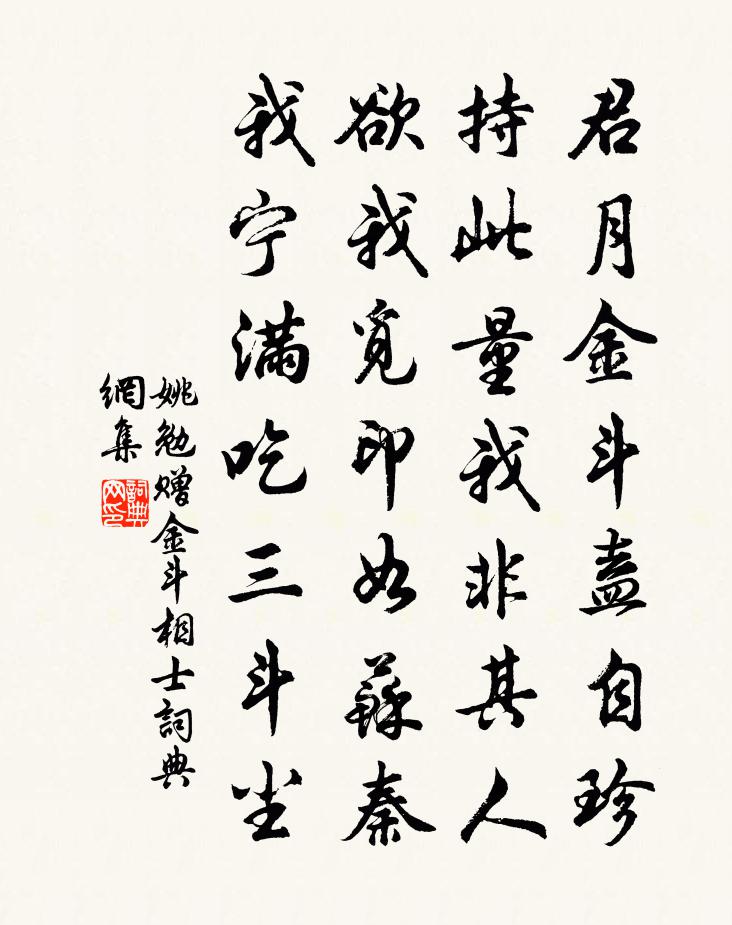 君月金斗盍自珍
持此量我非其人
欲我覓印如蘇秦
我宁滿吃三斗尘
姚勉赠金斗相士詞典
網集
詞典
网印